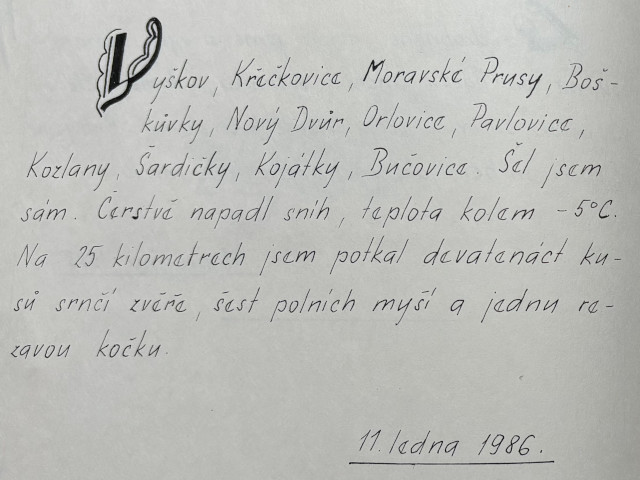 Vyškov, Křečkovice, Moravské Prusy, Boš-
kůvky, Nový Dvůr, Orlovice, Pavlovice,
Kozlany, Šardičky, Kojátky, Bučovice. Šel jsem
sám. Čerstvě napadl sníh, teplota kolem -5°C.
Na 25 kilometrech jsem potkal devatenáct ku-
sů srnčí zvěře, šest polních myší a jednu re-
zavou kočku.
11. ledna 1986.